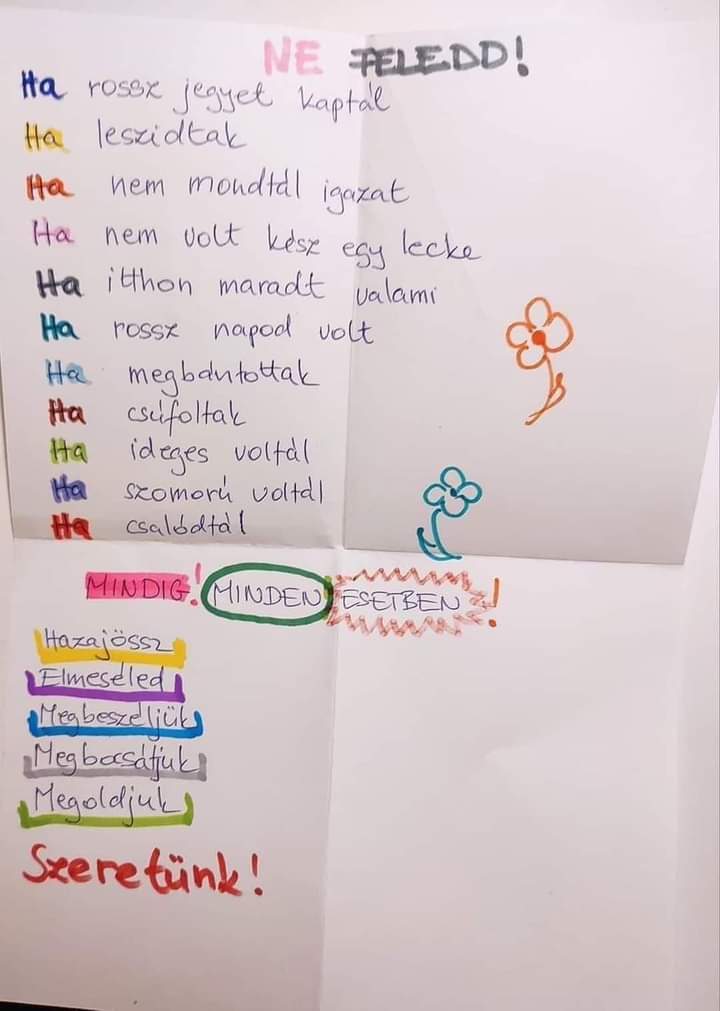 NE FELEDD!
Ha rossz jegyet kaptál
Ha leszidtak
Ha nem mondtál igazat
Ha nem volt kész egy lecke
Ha itthon maradt valami
Ha rossz napod volt
Ha megbántottak
Ha csúfoltak
Ha ideges voltál
Ha szomorú voltál
Ha csalódtál
MINDIG! MINDEN ESETBEN!
Hazajössz
Elmeséled
Megbeszéljük
Megbocsátjuk
Megoldjuk
Szeretünk!